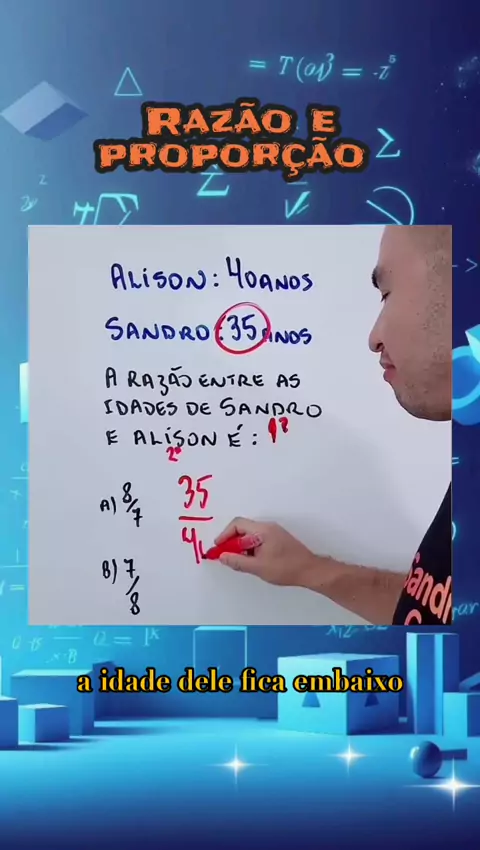 RAZÃO E
PROPORÇÃO
ALISON: 40 ANOS
SANDRO: 35 ANOS
A RAZÃO ENTRE AS
IDADES DE SANDRO
E ALISON É:
A) 8/7
35
4
B) 7/8
a idade dele fica embaixo